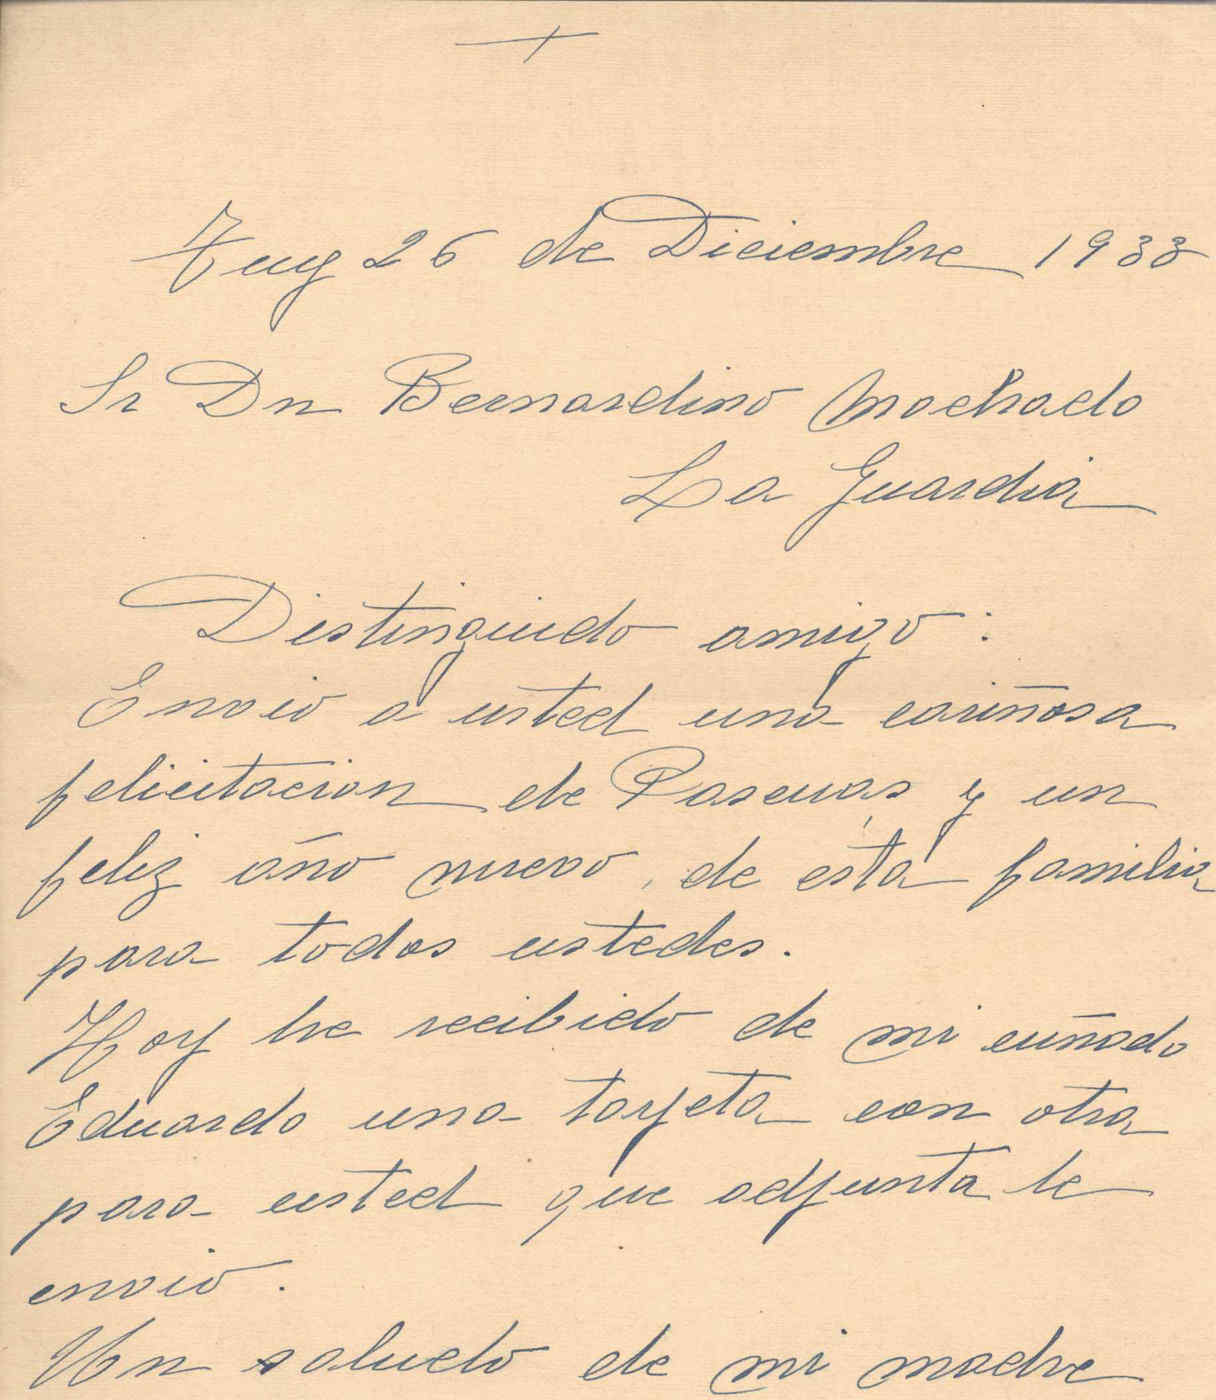 Tuy 26 de Diciembre 1933
Sr Dn Bernardino Machado
La Guardia
Distinguido amigo:
Envio a usted una cariñosa
felicitacion de Pascuas y un
feliz año nuevo, de esta familia
para todos ustedes.
Hoy he recibido de mi cuñado
Eduardo una tarjeta con otra
para usted que adjunta le
envio.
Un saludo de mi madre